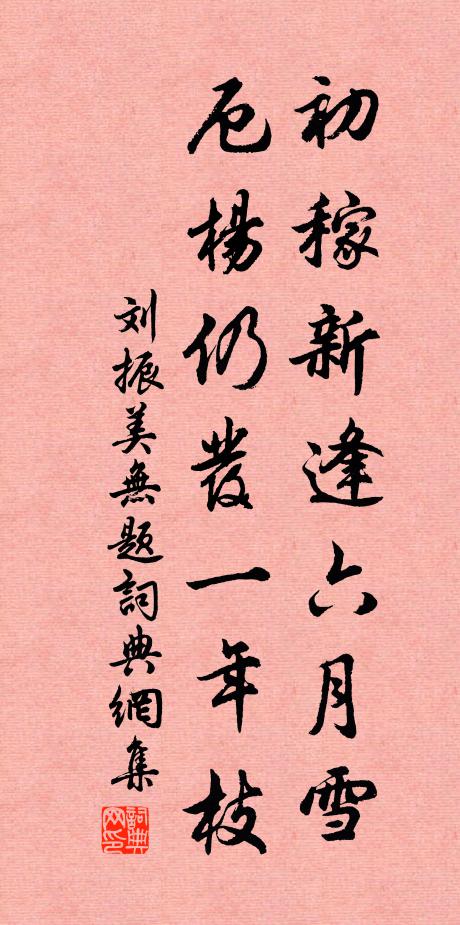 初稼新逢六月雪
厄楊仍發一年枝
刘振美無題詞典網集
詞典网印